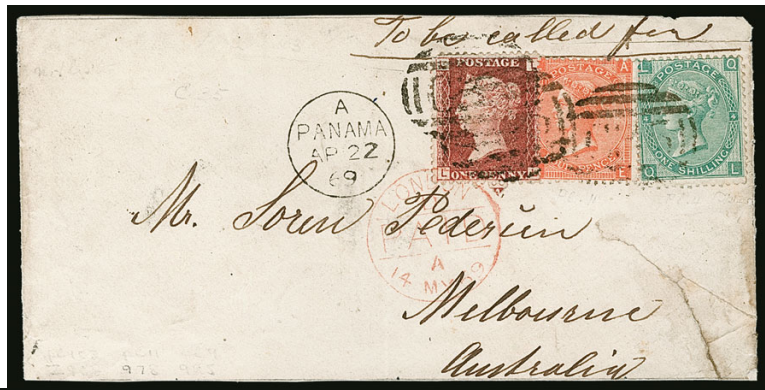 To be called for
POSTAGE L
L ONE PENNY
POSTAGE A
PENCE L
L POSTAGE Q
4 4
Q ONE SHILLING L
A
PANAMA
AP 22
69
LONDON
PAID
A
14 MY 69
Mr. Soren Pedersen
Melbourne
Australia